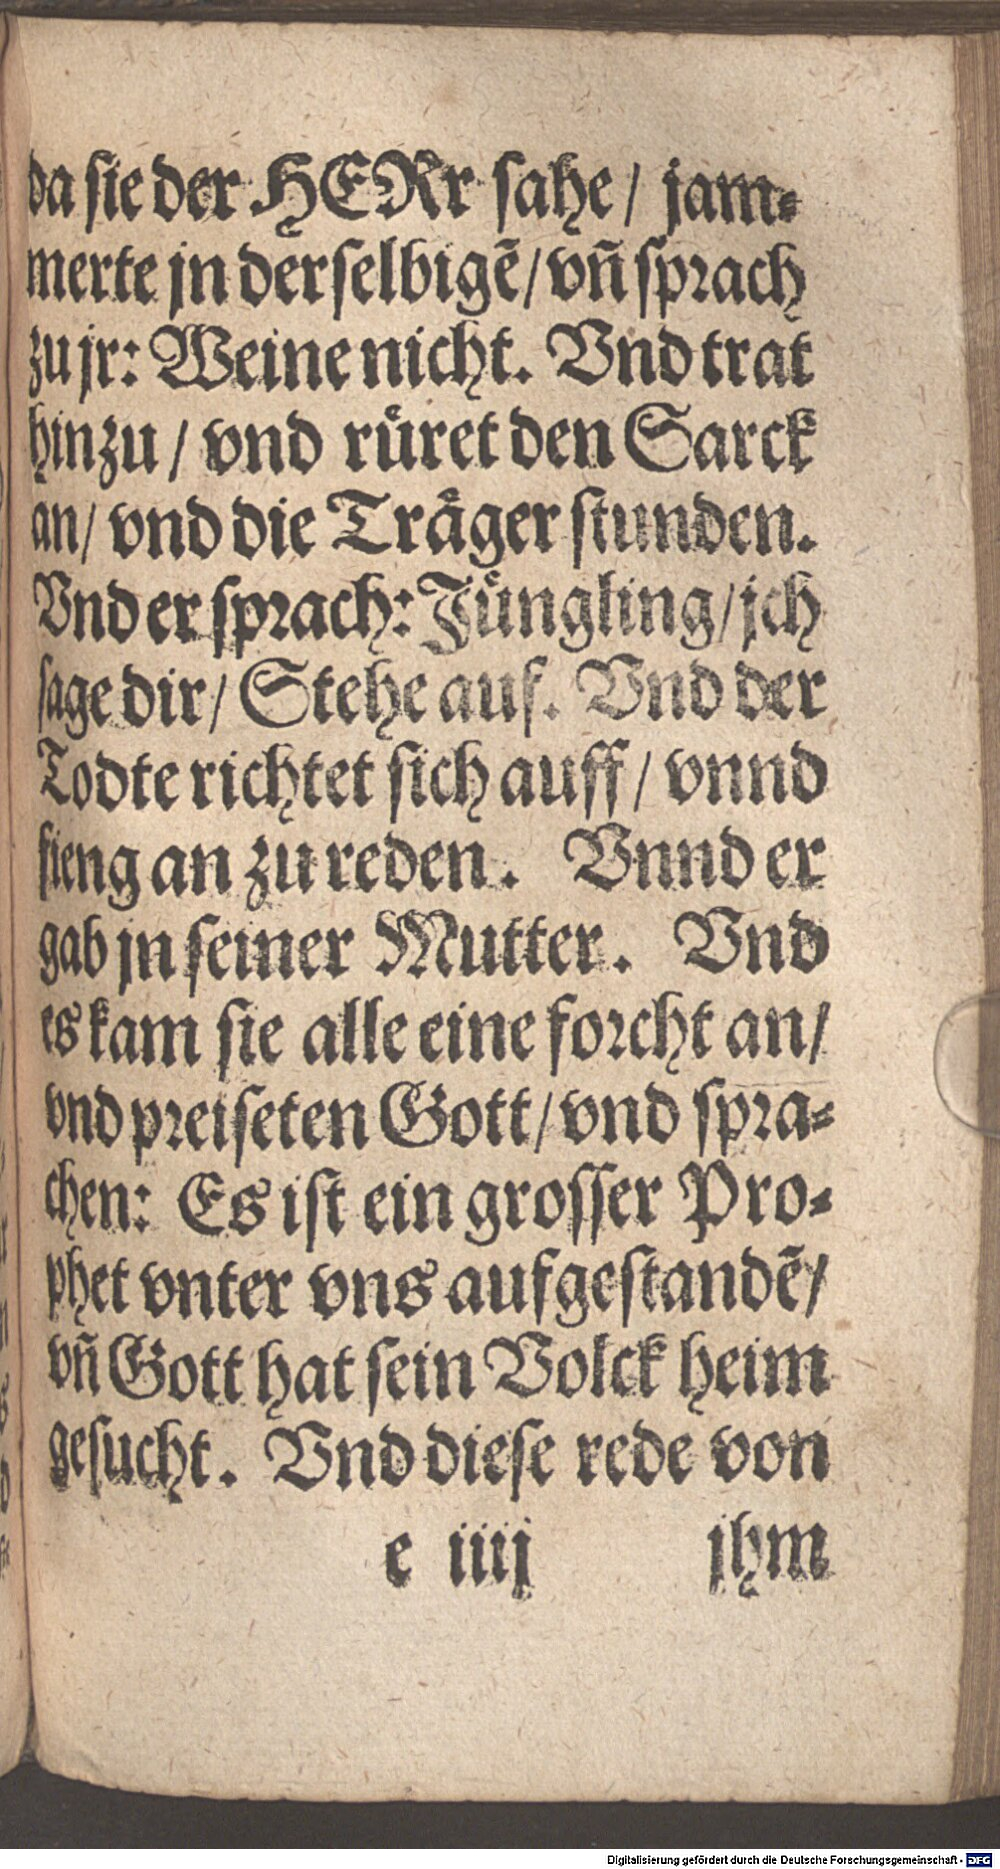 da sie der HERr sahe / jam⸗
merte jn derselbigẽ / vñ sprach
zu jr: Weine nicht. Vnd trat
hinzu / vnd ruͤret den Sarck
an / vnd die Traͤger stunden.
Vnd er sprach: Juͤngling / jch
sage dir / Stehe auf. Vnd der
Todte richtet sich auff / vnnd
fieng an zu reden. Vnnd er
gab jn seiner Mutter. Vnd
es kam sie alle eine forcht an /
vnd preiseten Gott / vnd spra⸗
chen: Es ist ein grosser Pro⸗
phet vnter vns aufgestandẽ /
vñ Gott hat sein Volck heim
gesucht. Vnd diese rede von
e iiij jhm
Digitalisierung gefördert durch die Deutsche Forschungsgemeinschaft - DFG